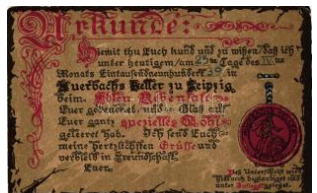 Urkunde:
Hiemit thu Euch kund und zu wißen/daß ich
unter heutigem/am 25ten Tage des IV.ten
Monats Eintausendneunhundert 39, in
Auerbachs Keller zu Leipzig
beim Edlen Rebensafte
Euer gedenket, und Glas auf
Euer gantz spezielles Wohl
geleeret hab. Ich send Euch
meine hertzlichsten Grüße und
verbleib in Freundschaft
Euer.
Unterschrift wird
hierdurch beglaubiget und
unter